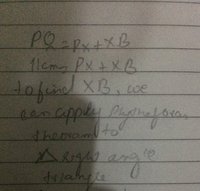 PQ = Px + XB
11cm = Px + XB
to find XB, we
can apply
to
△ right angle
triangle